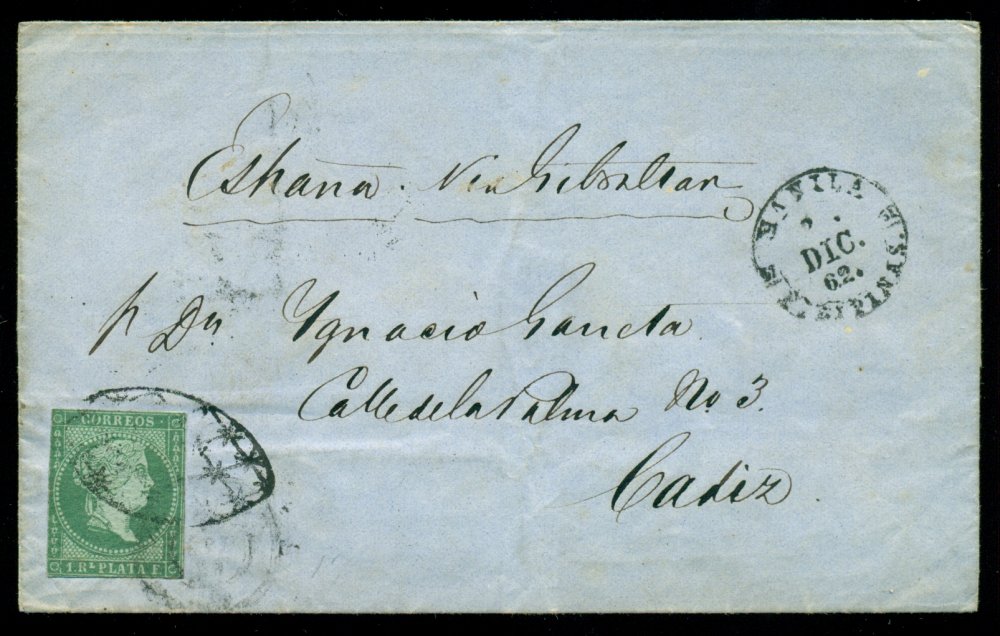 España. Via Gibraltar
MANILA
DIC.
62.
Dn Ygnacio
Calle de la Palma No. 3.
Cadiz.
CORREOS
1. Rl. PLATA F.